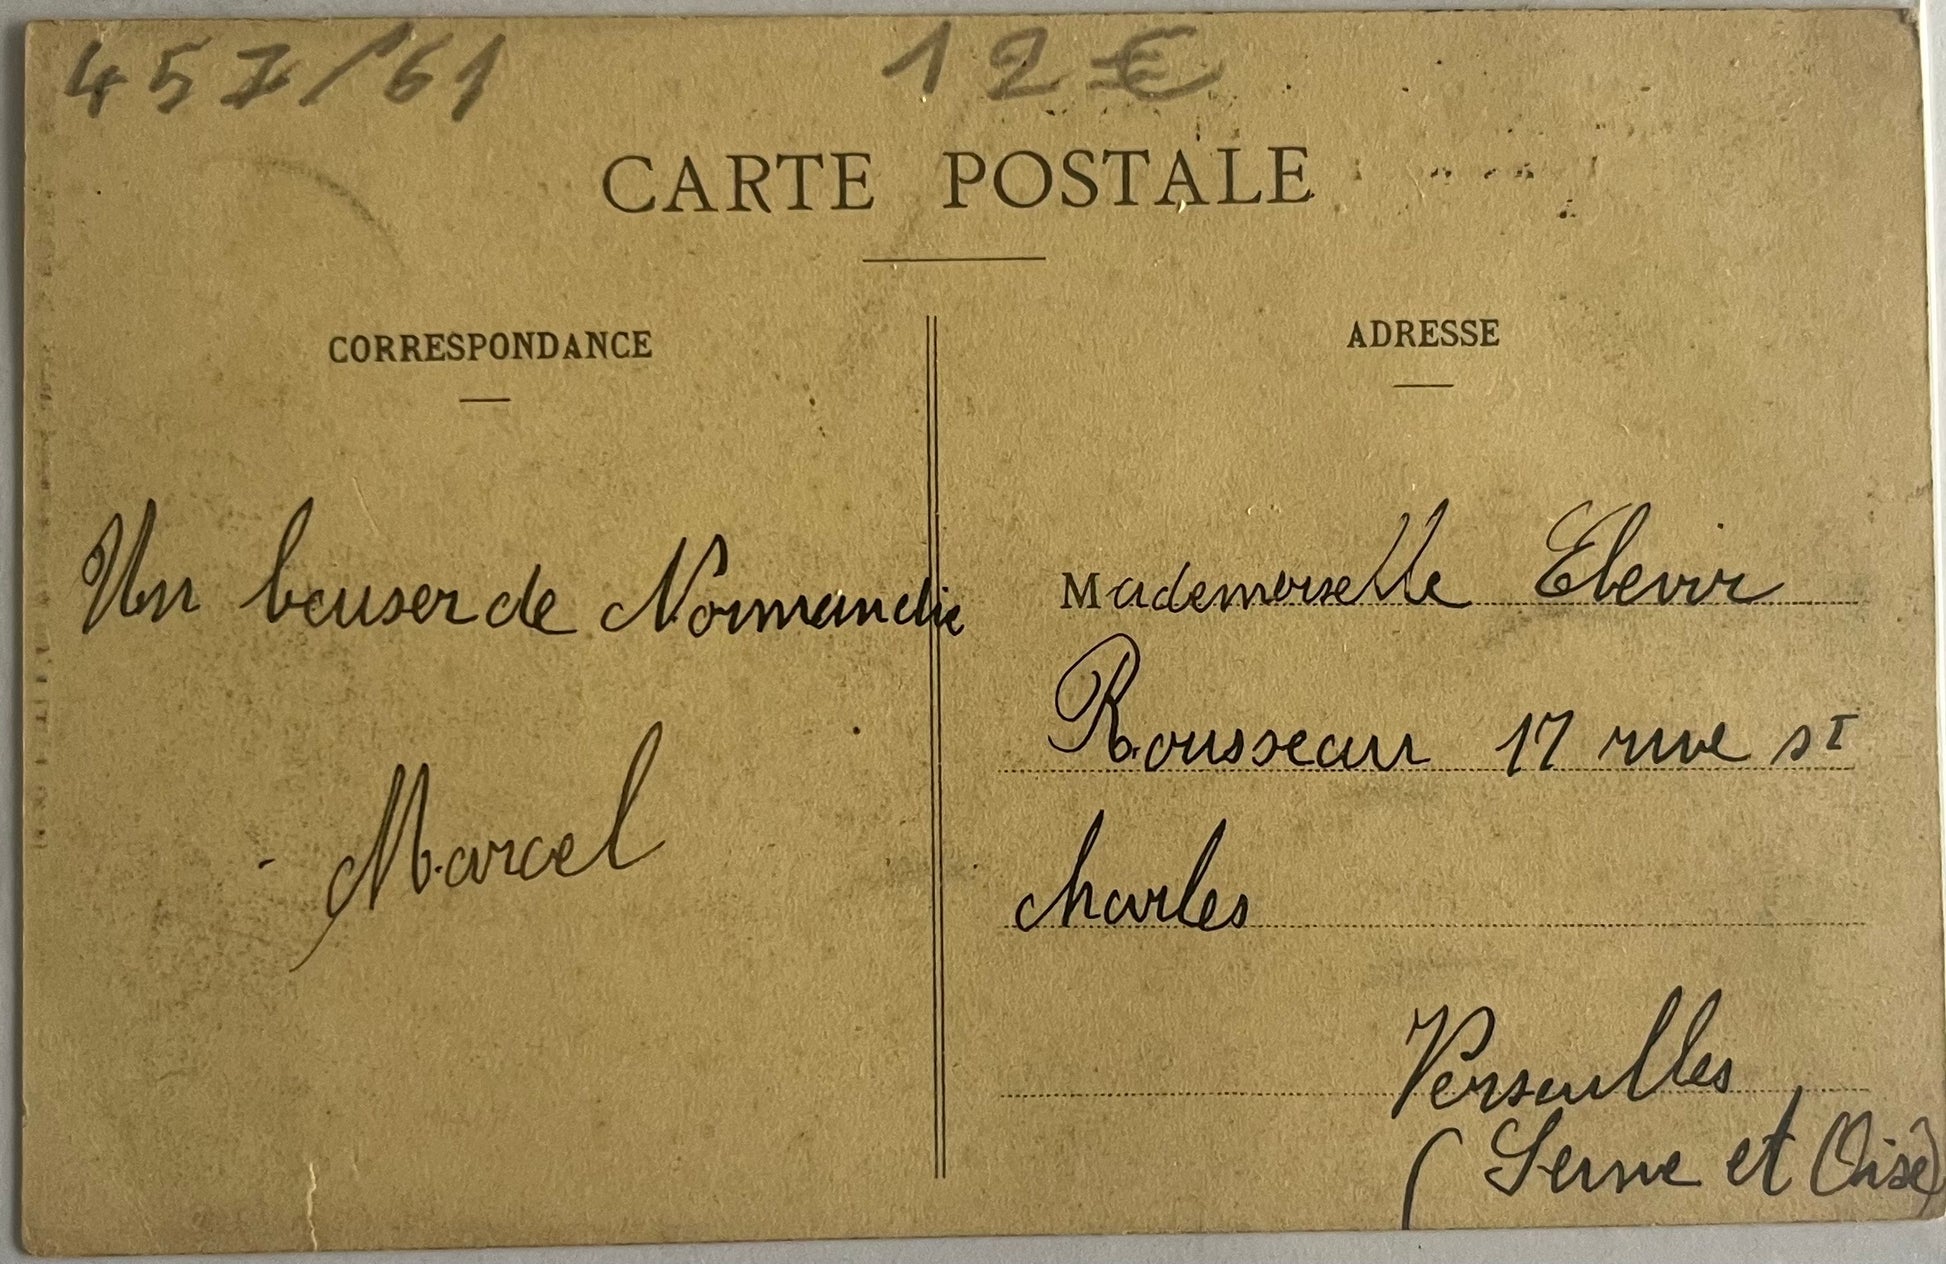 457/61
12€
CARTE POSTALE
CORRESPONDANCE
Un baiser de Normandie
Marcel
ADRESSE
Mademoiselle
Rousseau 17 rue St
Charles
Versailles
(Seine et Oise)